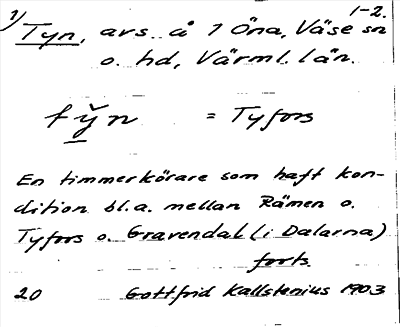 1) 1-2.
Tyn, avs. å 1 Öna, Väse sn
o. hd, Värml. län.
ty̆n = Tyfors
En timmerkörare som haft kon-
dition bl.a. mellan Rämen o.
Tyfors o. Gravendal (i Dalarna)
forts.
20 Gottfrid Kallstenius 1903